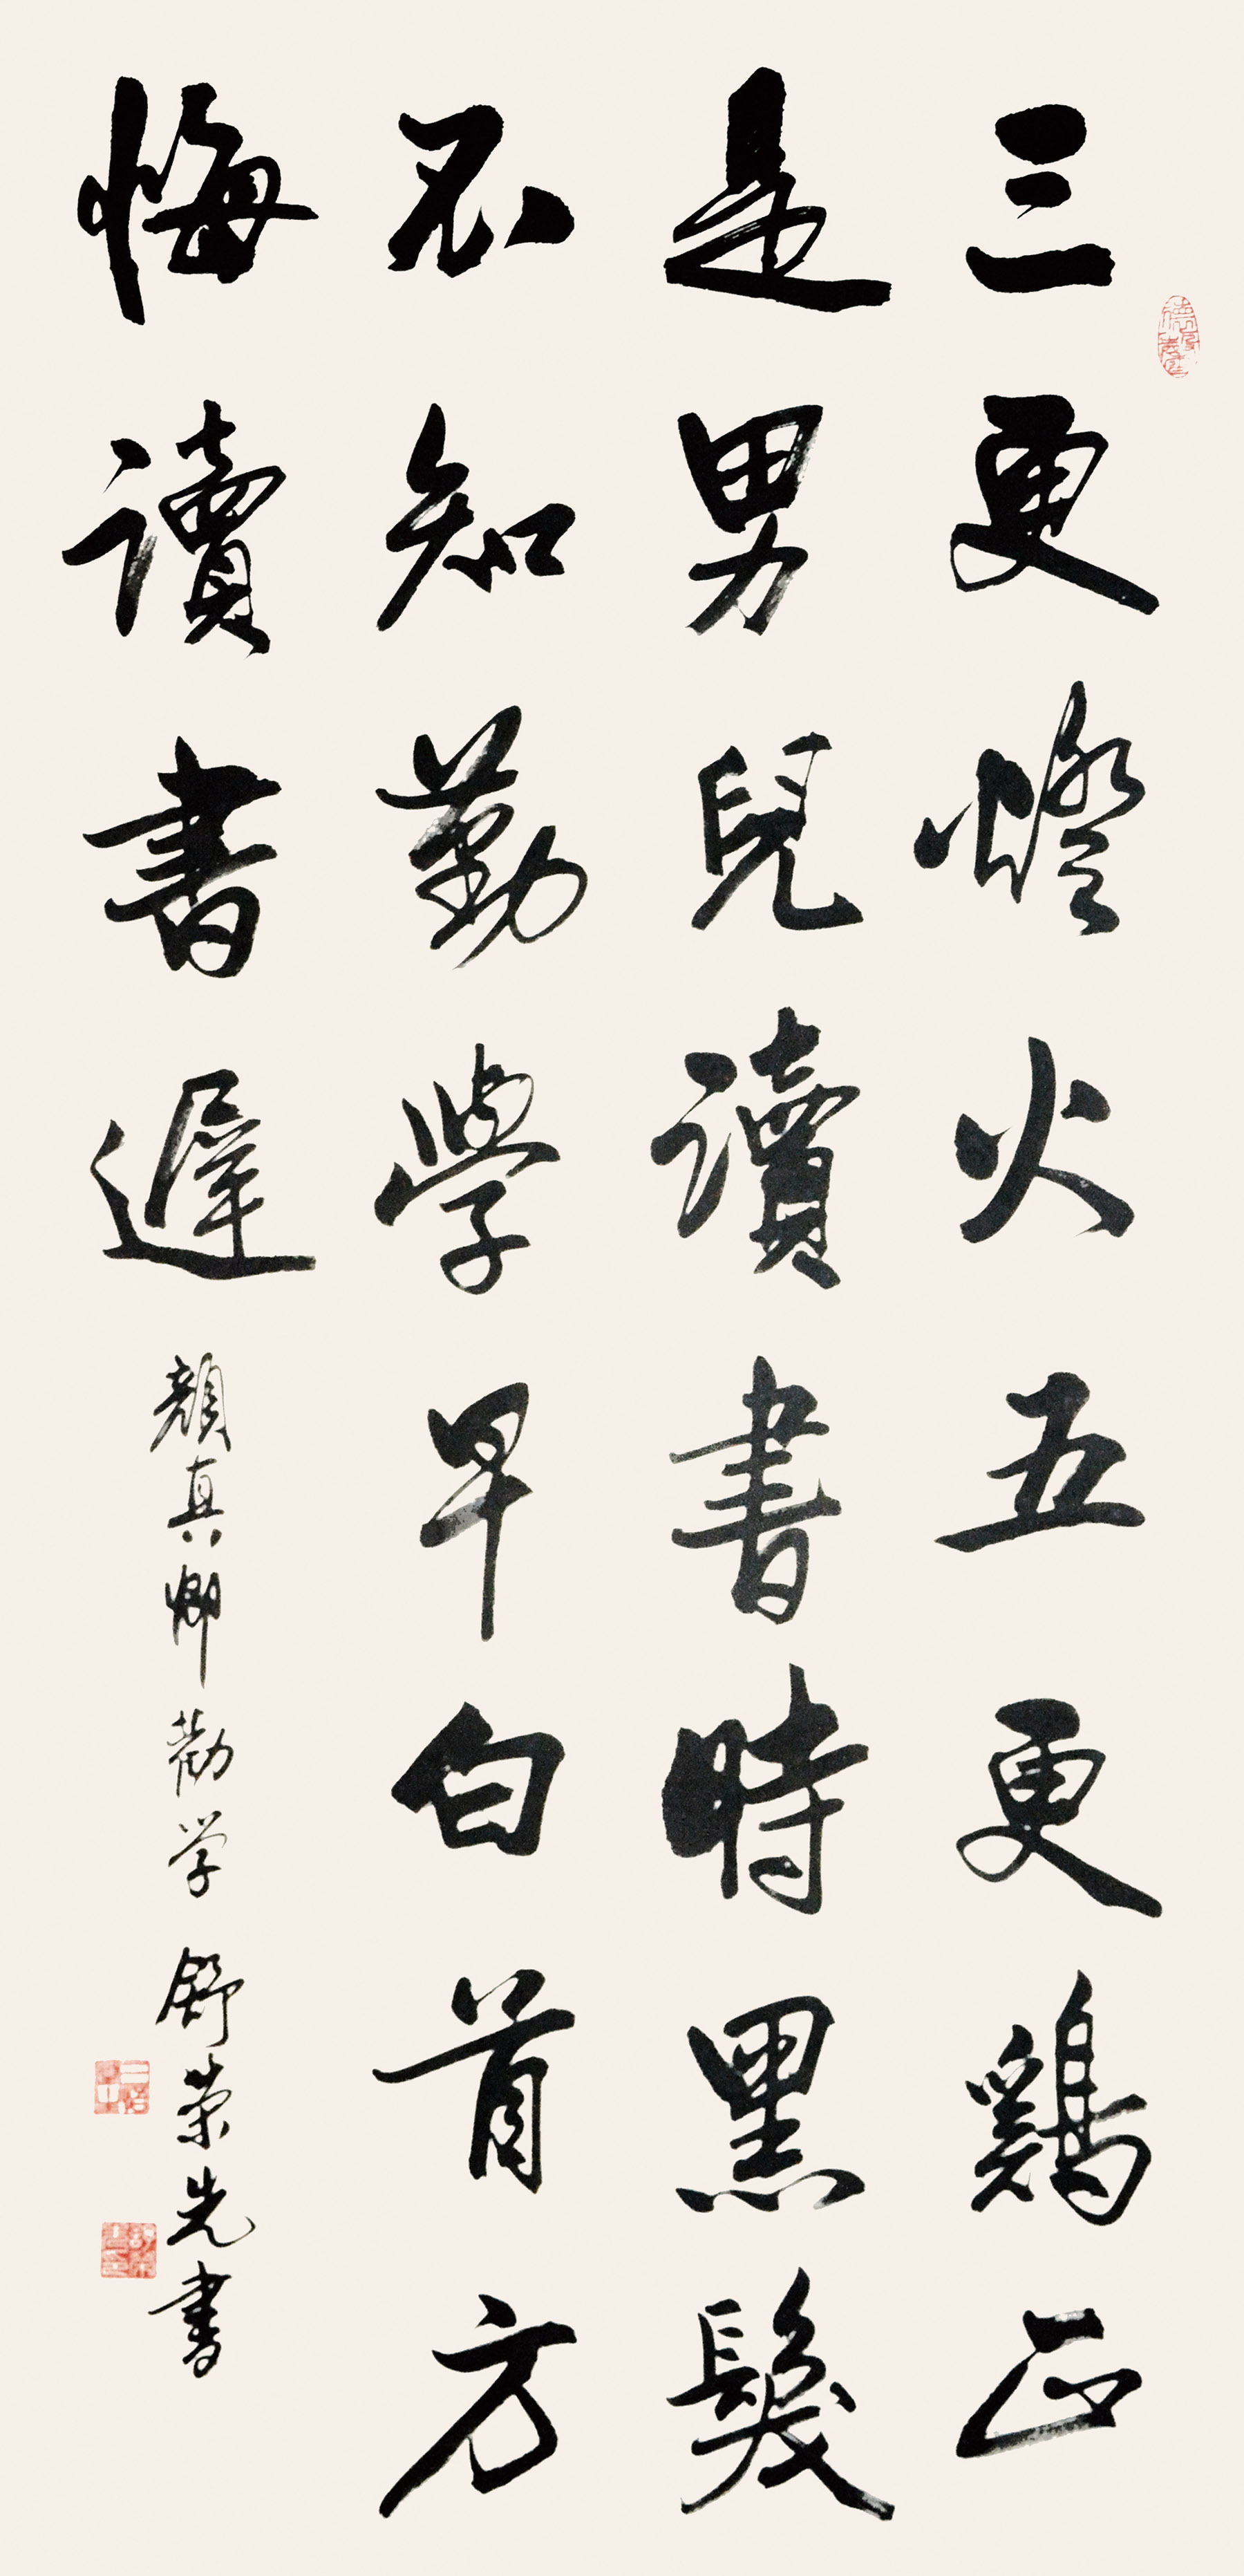 三更燈火五更鷄正
是男兒讀書時黑髮
不知勤學早白首方
悔讀書遲
顏真卿勸学 舒荣先書